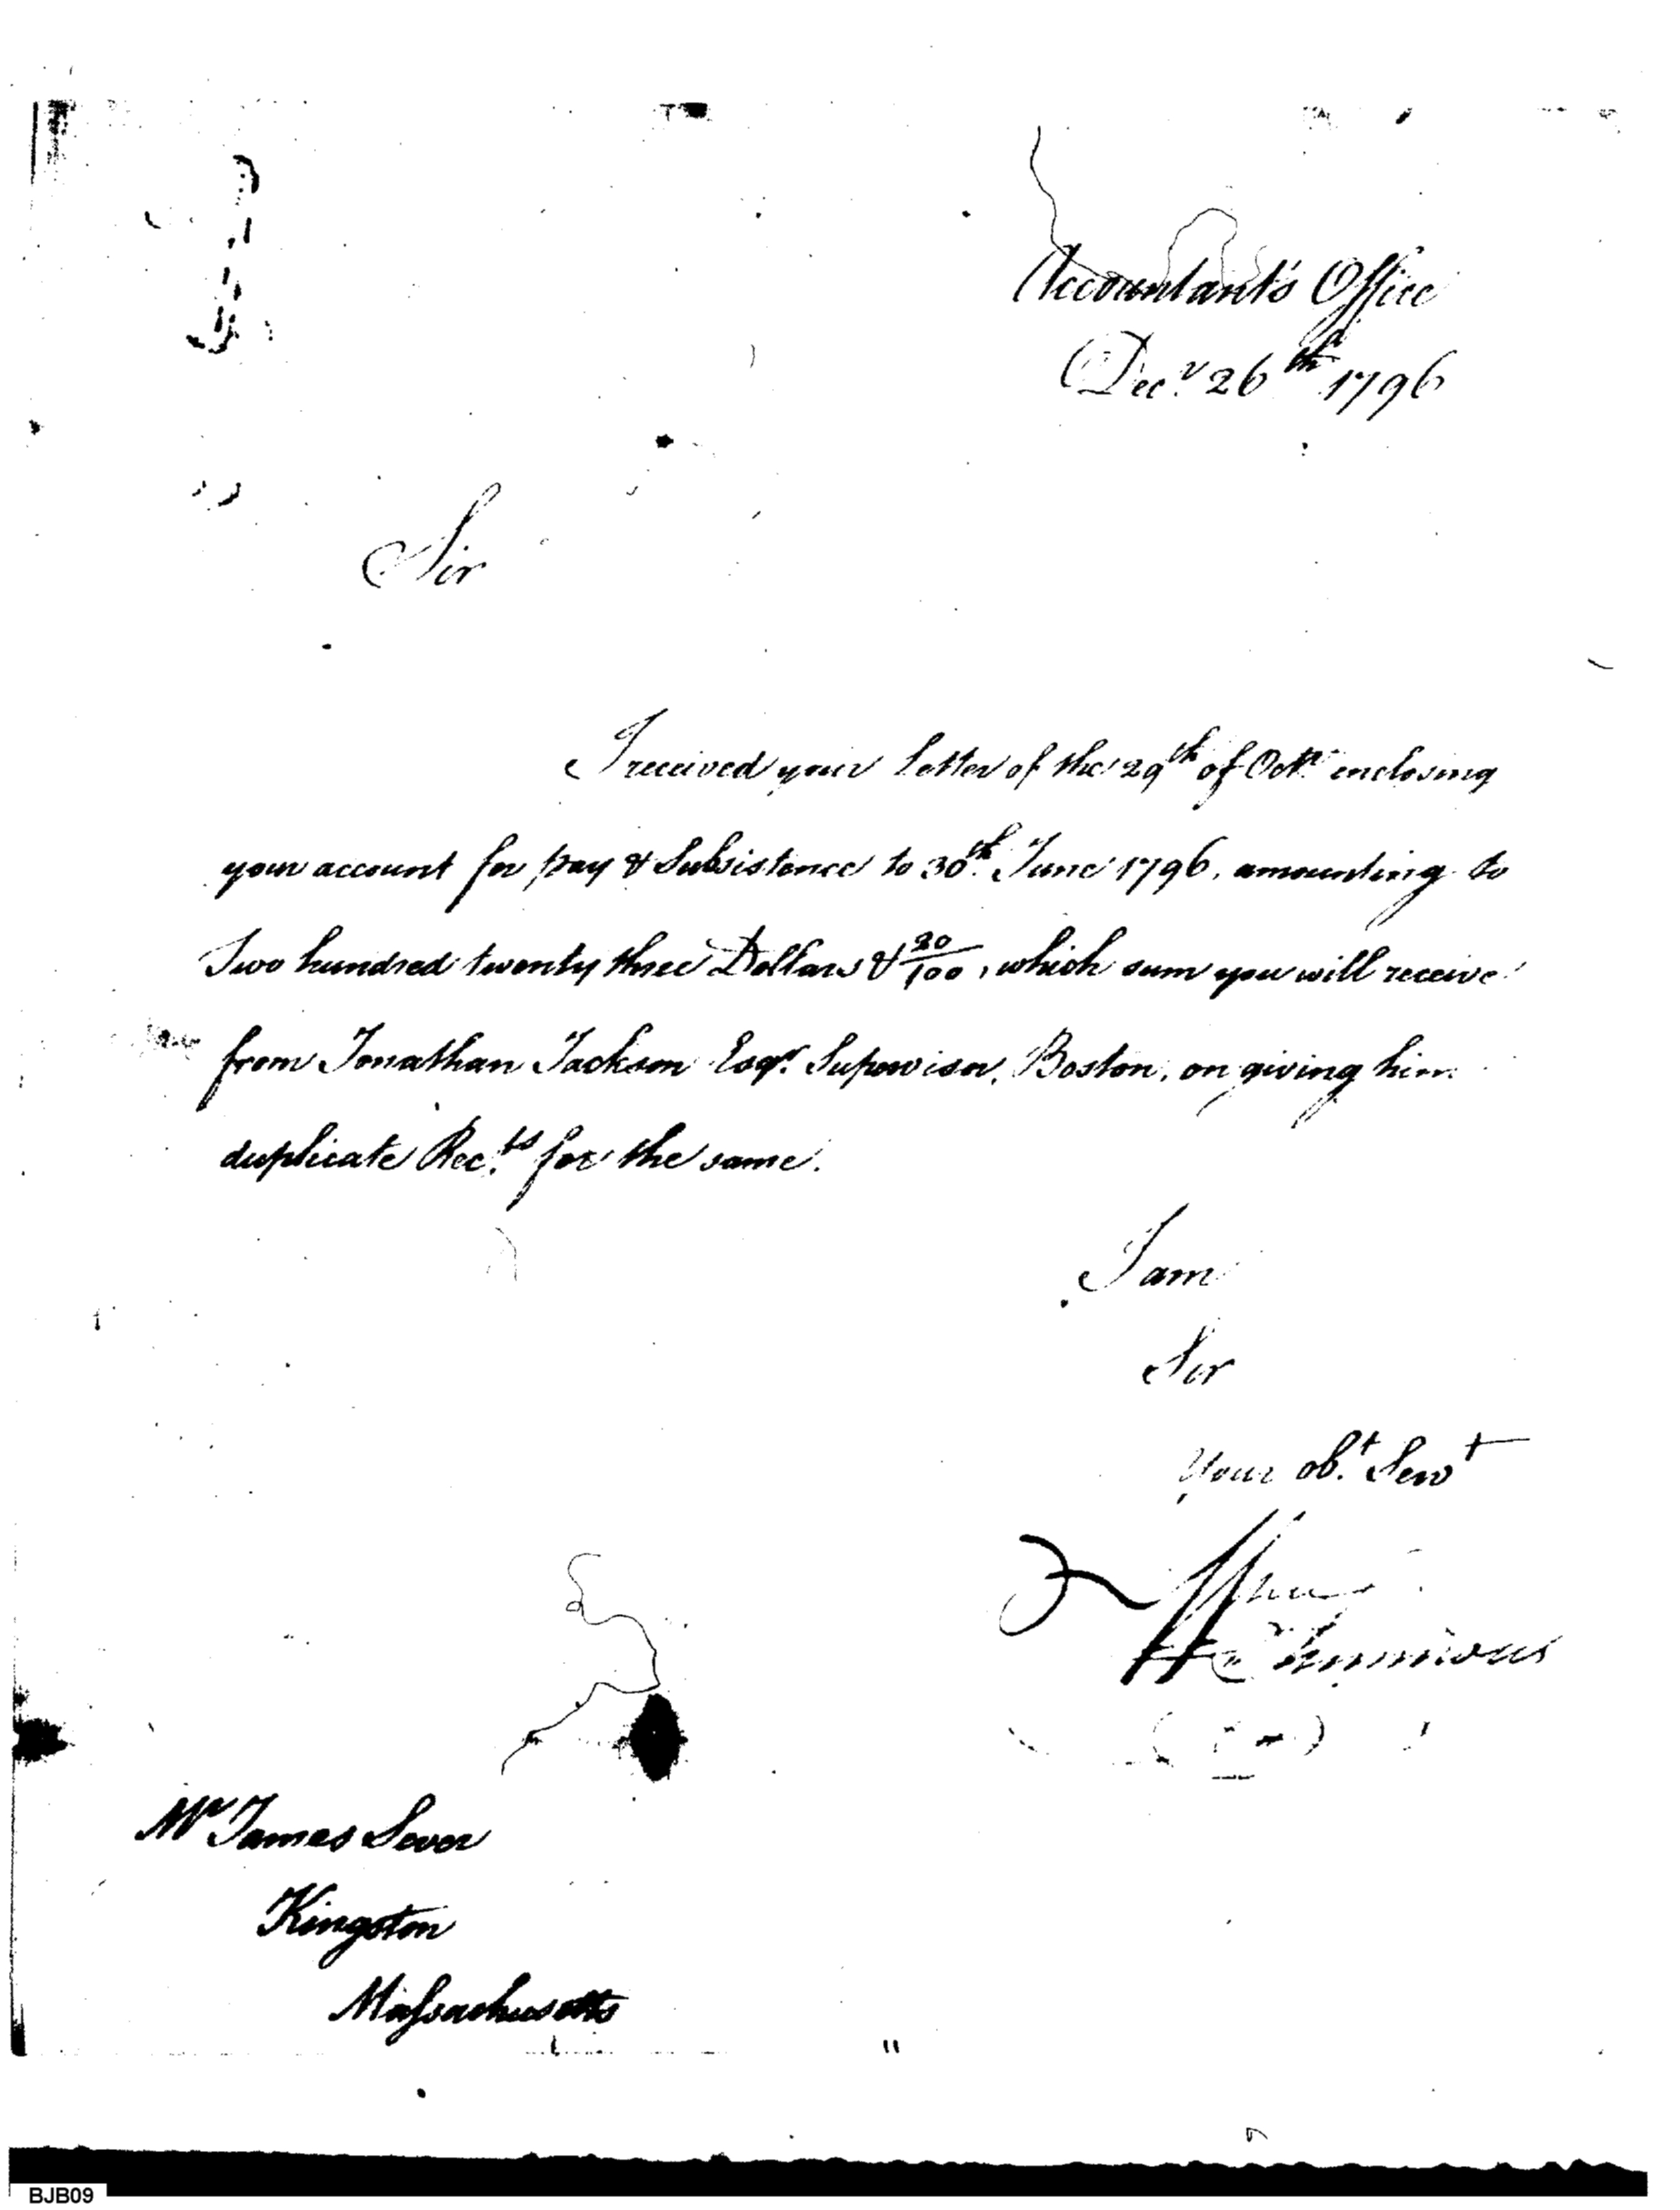 Accountant's Office
Decr. 26th 1796
Sir
I received your letter of the 29th of Octr. enclosing
your account for pay & Subsistence to 30th. June 1796, amounting to
Two hundred twenty three Dollars & 20/100, which sum you will receive
from Jonathan Jackson Esqr. Supervisor, Boston, on giving him
duplicate Rects. for the same.
I am
Sir
Your obt. Servt
Wm
Simmons
Mr James Sever
Kingston
Massachusetts
BJB09